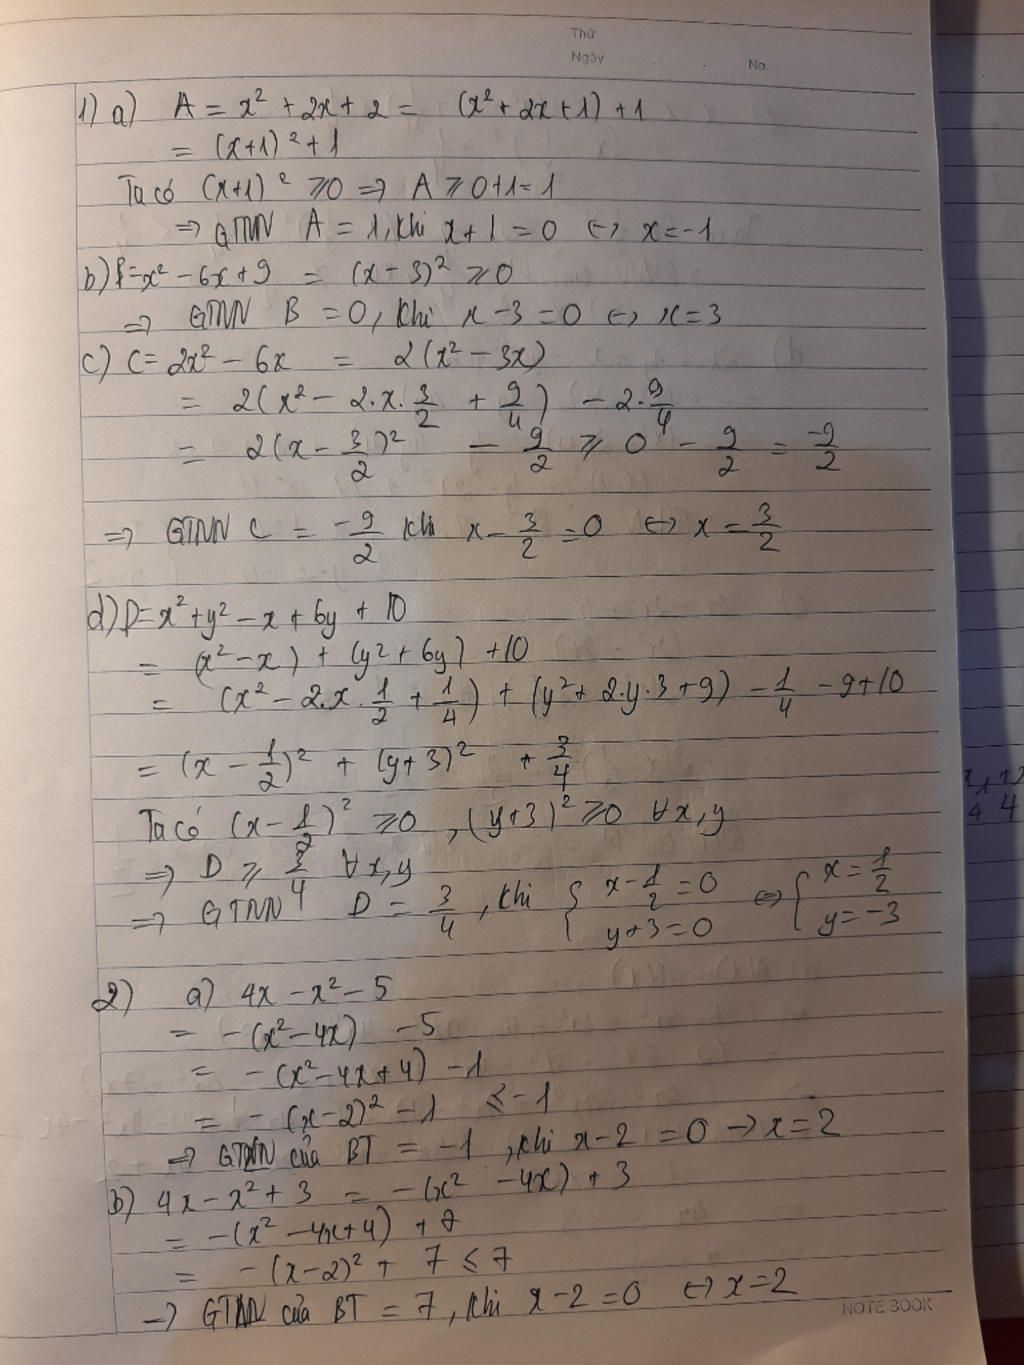 Thứ
Ngày
No.
1) a) A = x² + 2x + 2 = (x² + 2x + 1) + 1
= (x+1)² + 1
Ta có (x+1)² ⩾ 0 => A ⩾ 0+1 = 1
=> GTNN A = 1, khi x + 1 = 0 <=> x = -1
b) B = x² - 6x + 9 = (x - 3)² ⩾ 0
=> GTNN B = 0, khi x - 3 = 0 <=> x = 3
c) C = 2x² - 6x = 2(x² - 3x)
= 2(x² - 2.x.3/2 + 9/4) - 2.9/4
= 2(x - 3/2)² - 9/2 ⩾ 0 - 9/2 = -9/2
=> GTNN C = -9/2 khi x - 3/2 = 0 <=> x = 3/2
d) D = x² + y² - x + 6y + 10
= (x² - x) + (y² + 6y) + 10
= (x² - 2.x.1/2 + 1/4) + (y² + 2.y.3 + 9) - 1/4 - 9 + 10
= (x - 1/2)² + (y+3)² + 3/4
Ta có (x - 1/2)² ⩾ 0, (y+3)² ⩾ 0 ∀x,y
=> D ⩾ 3/4 ∀x,y
=> GTNN D = 3/4, khi { x - 1/2 = 0 <=> { x = 1/2
y + 3 = 0 y = -3
2) a) 4x - x² - 5
= -(x² - 4x) - 5
= -(x² - 4x + 4) - 1
= -(x - 2)² - 1 ⩽ -1
=> GTLN của BT = -1, khi x - 2 = 0 -> x = 2
b) 4x - x² + 3 = -(x² - 4x) + 3
= -(x² - 4x + 4) + 7
= -(x - 2)² + 7 ⩽ 7
=> GTLN của BT = 7, khi x - 2 = 0 <=> x = 2
NOTE BOOK